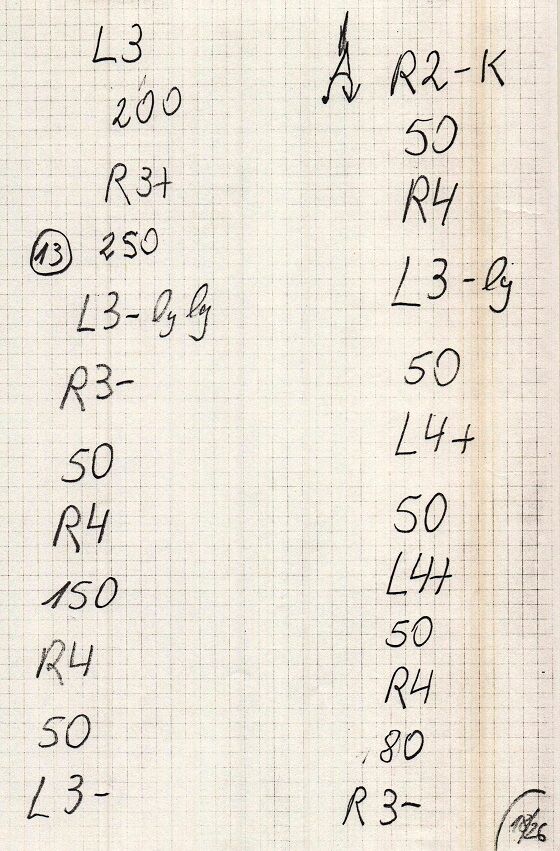 L3
200
R3+
13 250
L3- ly ly
R3-
50
R4
150
R4
50
L3-
R2-K
50
R4
L3-ly
50
L4+
50
L4+
50
R4
80
R3-